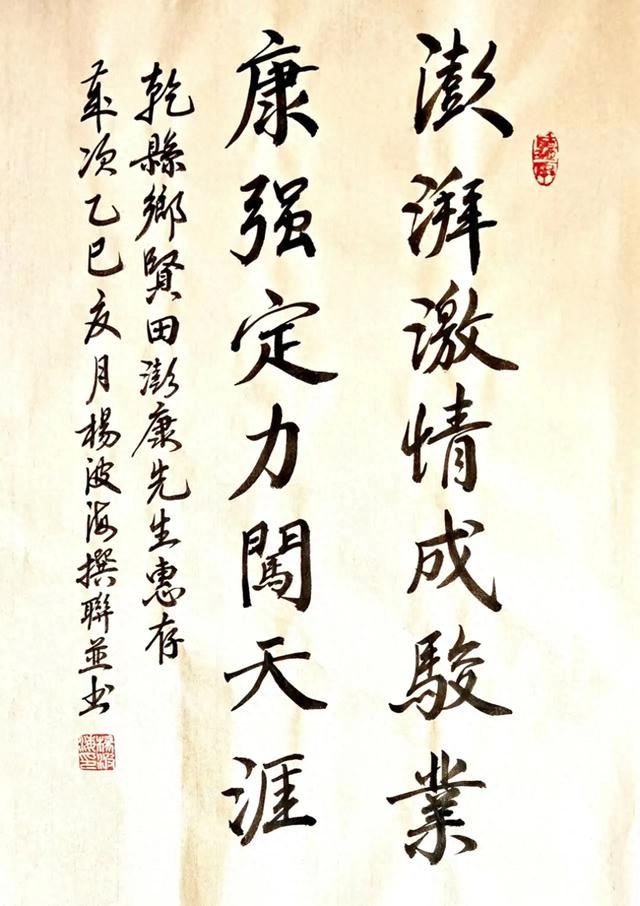 澎湃激情成駿業
康强定力闖天涯
乾縣鄉賢田澎康先生惠存
歲次乙巳亥月楊波海撰聯並书